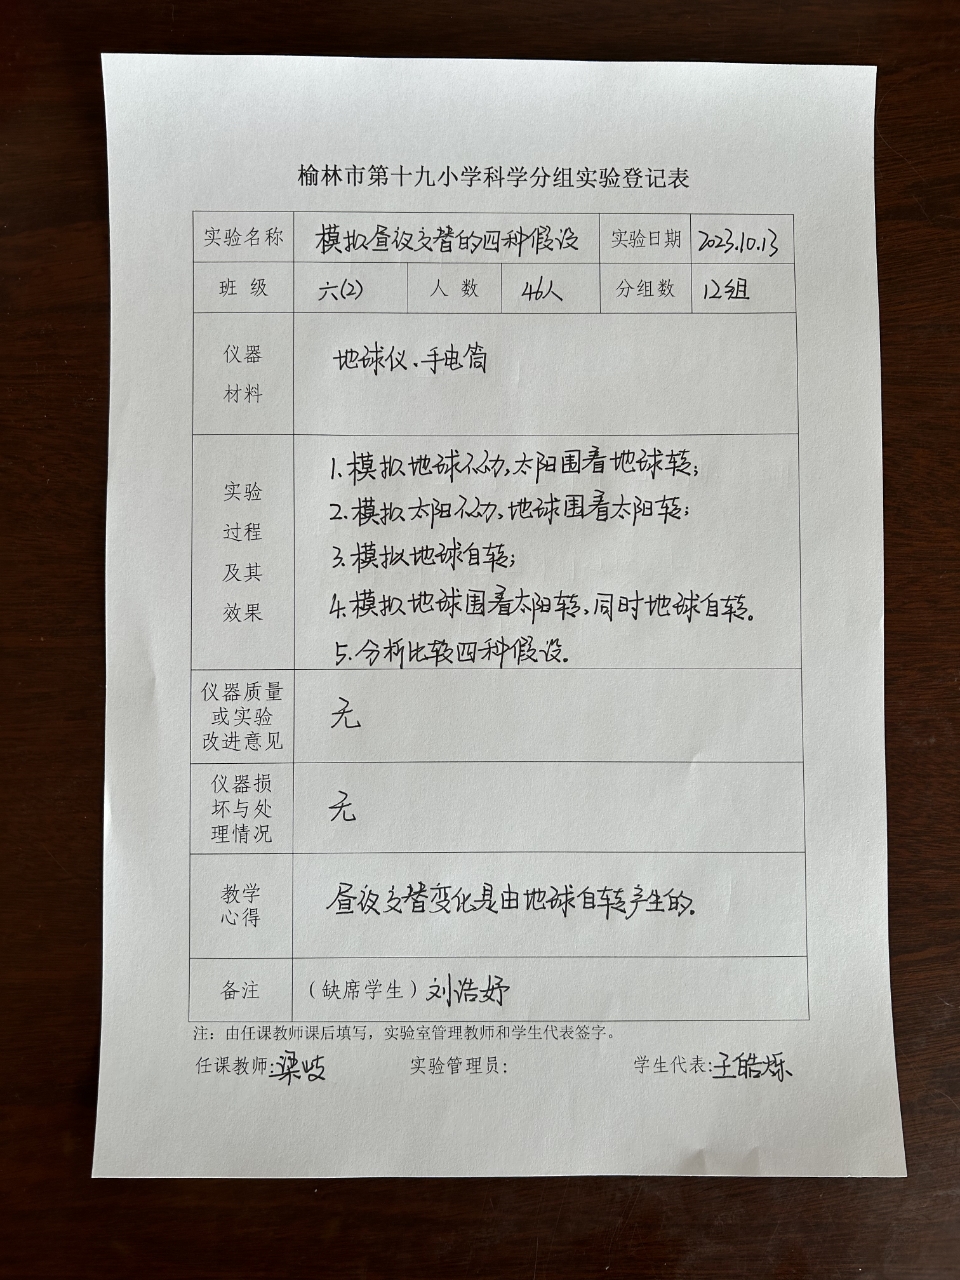 榆林市第十九小学科学分组实验登记表
实验名称 模拟昼夜交替的四种假设 实验日期 2023.10.13
班 级 六(2) 人 数 46人 分组数 12组
仪器
材料
地球仪、手电筒
实验
过程
及其
效果
1.模拟地球不动,太阳围着地球转;
2.模拟太阳不动,地球围着太阳转;
3.模拟地球自转;
4.模拟地球围着太阳转,同时地球自转。
5.分析比较四种假设。
仪器质量
或实验
改进意见
无
仪器损
坏与处
理情况
无
教学
心得
昼夜交替变化是由地球自转产生的。
备注 (缺席学生) 刘浩妤
注：由任课教师课后填写，实验室管理教师和学生代表签字。
任课教师:梁岐 实验管理员: 学生代表:王皓烁